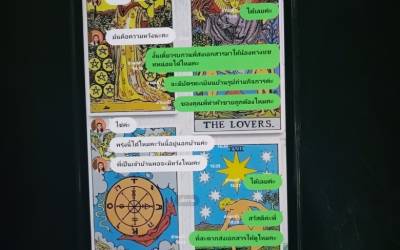 ได้เลยค่ะ
มันคือความหวังนะคะ
งั้นเดี๋ยวรบกวนพี่ส่งเอกสารมาให้น้องทาง
หน่อยได้ไหมคะ
จะมีบัตรทะเบียนบ้านรูปถ่ายกิจการค่ะ
ของคุณพี่ทำค้าขายถูกต้องไหมคะ
THE LOVERS.
ใช่ค่ะ
พรุ่งนี้ได้ไหมคะวันนี้อยู่นอกบ้านค่ะ
ที่เป็นเจ้าบ้านพอจะมีหวังไหมคะ
XVII
ได้เลยค่ะ
สวัสดีค่ะพี่
พี่สะดวกส่งเอกสารให้ดูไหมคะ